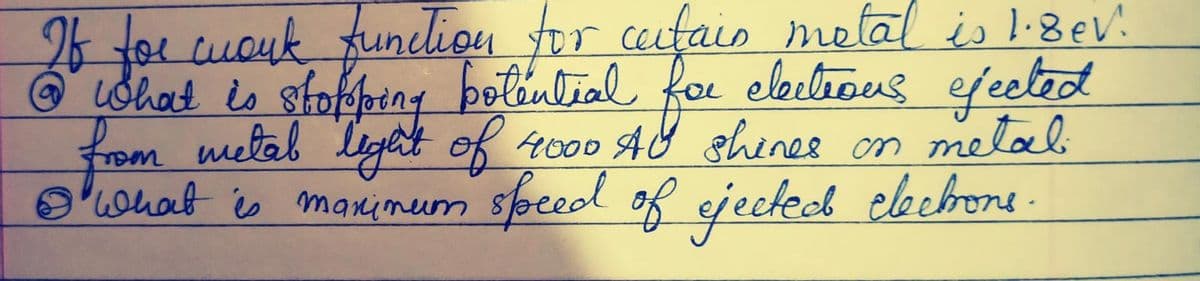 If for work function for certain metal is 1.8eV.
ⓐ What is stopping potential for electrons ejected
from metal light of 4000 A° shines on metal.
ⓑ What is maximum speed of ejected electrons.